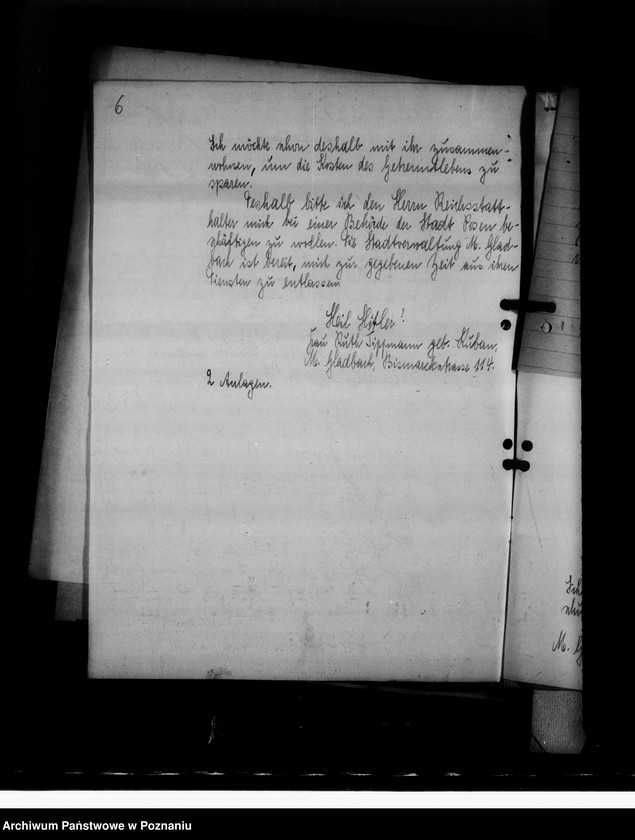 6
Ich möchte schon deshalb mit ihr zusammen-
wohnen, um die Kosten des Getrenntlebens zu
sparen.
Deshalb bitte ich den Herrn Reichsstatt-
halter mich bei einer Behörde der Stadt Posen be-
schäftigen zu wollen. Die Stadtverwaltung M. Glad-
bach ist bereit, mich zur gegebenen Zeit aus ihren
Diensten zu entlassen.
Heil Hitler!
Frau Ruth Tippmann geb. Kuban,
M. Gladbach, Bismarckstrasse 114.
2 Anlagen.
M. G
Archiwum Państwowe w Poznaniu